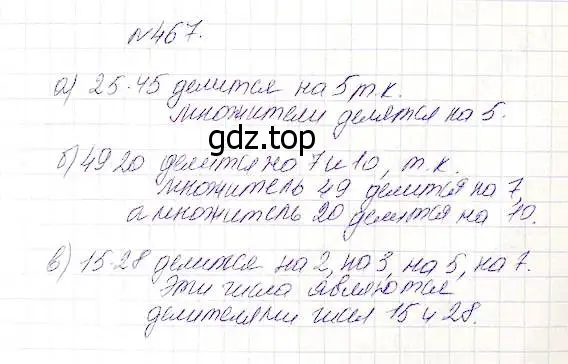 №467.
а) 25·45 делится на 5 т.к.
множители делятся на 5.
gdz.top
б) 49 20 делится на 7 и 10, т.к.
множитель 49 делится на 7,
а множитель 20 делится на 10.
в) 15·28 делится на 2, на 3, на 5, на 7.
Эти числа являются
делителями чисел 15 и 28.